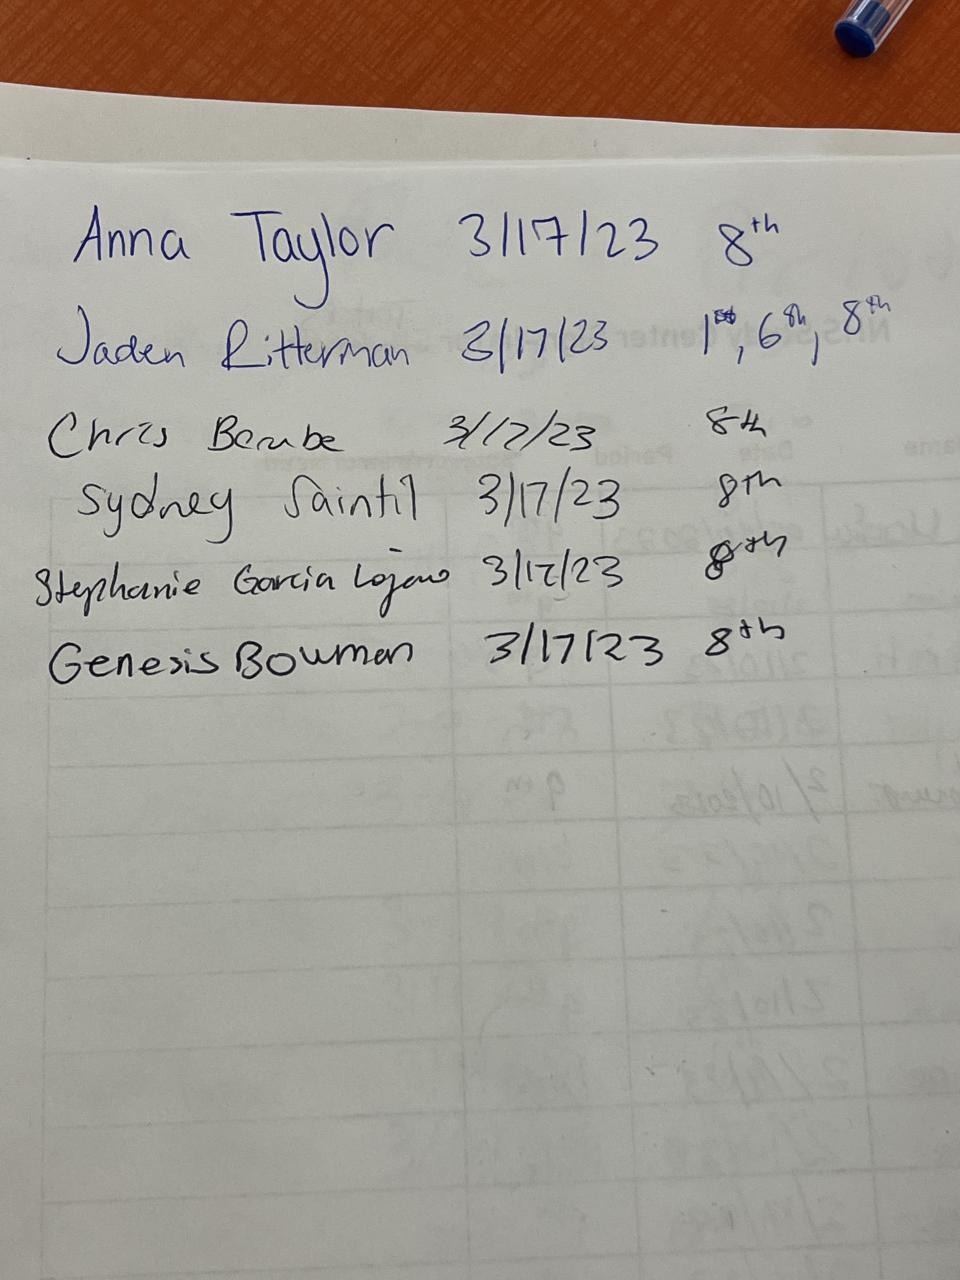 Anna Taylor 3/17/23 8th
Jaden Ritterman 3/17/23 1st, 6th, 8th
Chris Berube 3/17/23 8th
Sydney Saintil 3/17/23 8th
Stephanie Garcia Lojano 3/17/23 8th
Genesis Bowman 3/17/23 8th